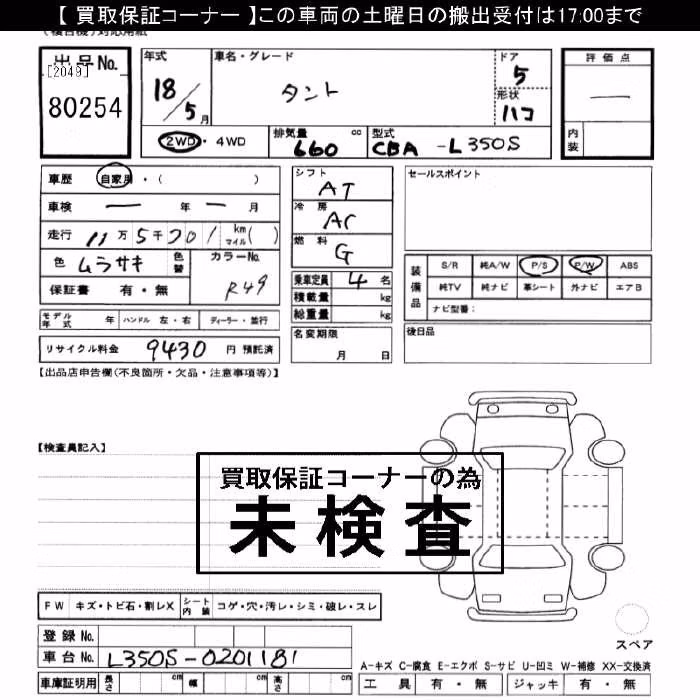 【 買取保証コーナー 】この車両の土曜日の搬出受付は17:00まで
出品No.
[2049]
80254
年式
18/5月
車名・グレード
タント
ドア
5
形状
ハコ
評価点
—
内装
2WD・4WD
排気量 cc
660
型式
CBA -L350S
車歴 自家用・( )
車検 — 年 — 月
走行 11万5千201 km マイル( )
色 ムラサキ 色替
カラーNo.
R49
保証書 有・無
モデル年式 年 ハンドル 左・右 ディーラー・並行
リサイクル料金 9430 円 預託済
シフト
AT
冷房
AC
燃料
G
乗車定員 4 名
積載量 kg
総重量 kg
名変期限
月 日
セールスポイント
装備品
S/R 純A/W P/S P/W ABS
純TV 純ナビ 革シート 外ナビ エアB
ナビ型番:
後日品
【出品店申告欄(不良箇所・欠品・注意事項等)】
【検査員記入】
買取保証コーナーの為
未検査
FW キズ・トビ石・割レX シート内装 コゲ・穴・汚レ・シミ・破レ・スレ
登録No.
車台No. L350S-0201181
車庫証明用 長さ cm 幅 cm 高さ cm
スペア
A-キズ C-腐食 E-エクボ S-サビ U-凹ミ W-補修 XX-交換済
工具 有・無 ジャッキ 有・無